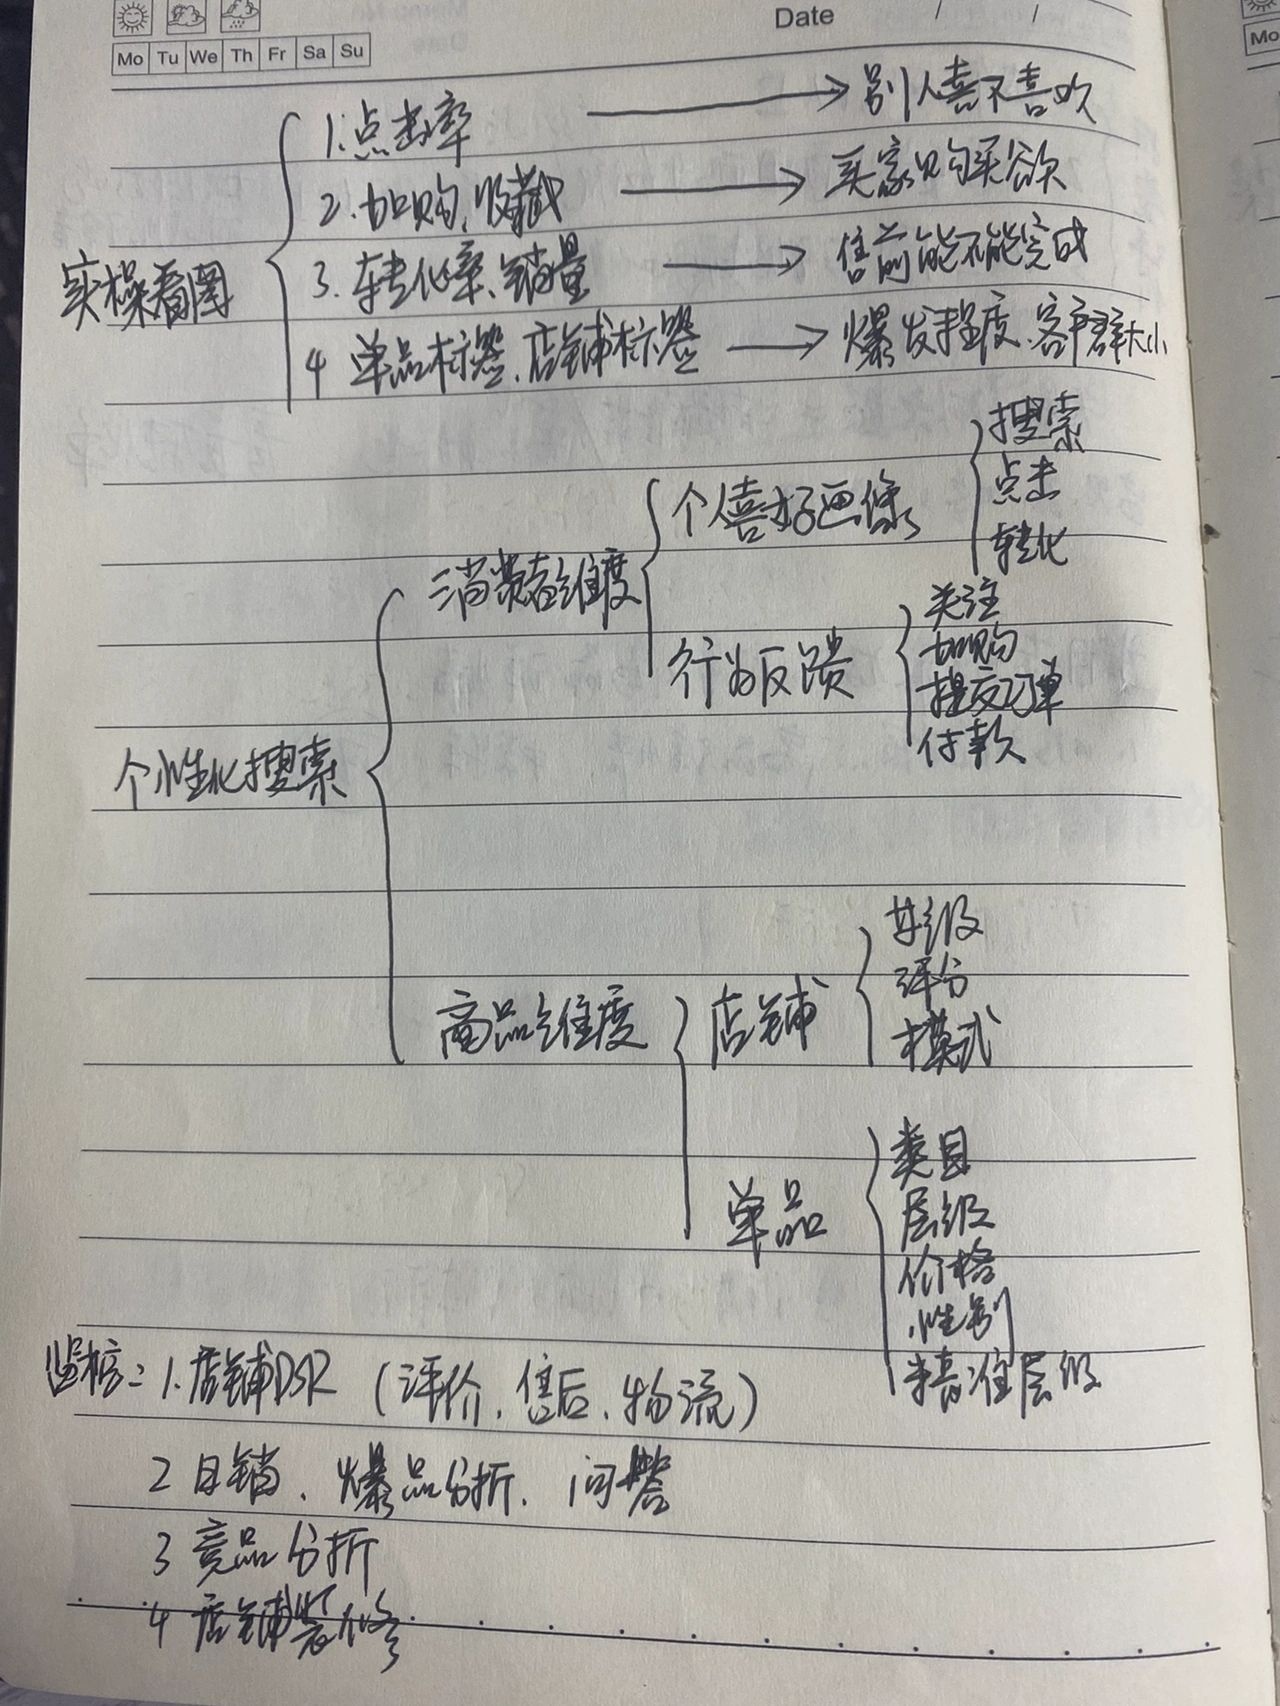 Date / /
Mo Tu We Th Fr Sa Su
Mo
1.点击率 → 别人喜不喜欢
2.加购,收藏 → 买家购买欲
实操看图
3.转化率、销量 → 售前能不能完成
4 单品标签、店铺标签 → 爆发程度、客户群大小
搜索
个人喜好画像
点击
转化
消费者维度
关注
加购
行为反馈
提交订单
付款
个性化搜索
等级
评分
商品维度
店铺
模式
类目
单品
层级
价格
性别
精准层级
1.店铺DSR (评价、售后、物流)
2 日销、爆品分折、问答
3 竞品分折
4 店铺装修